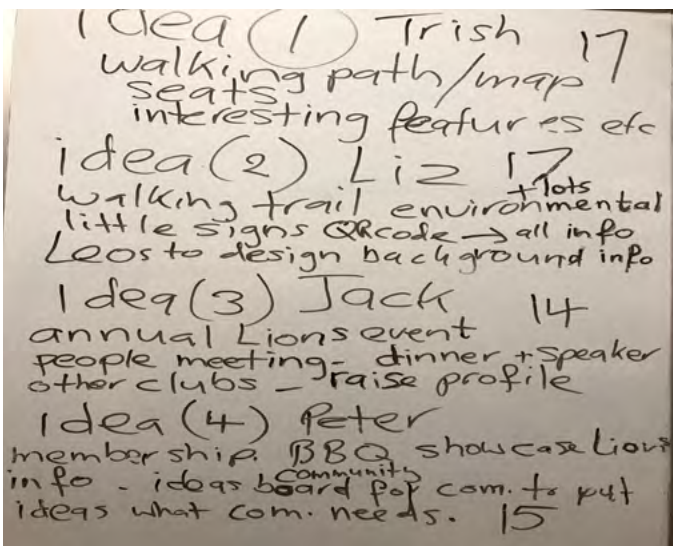 Idea (1) Trish 17
walking path/map
seats
interesting features etc
idea (2) Liz 17
+ lots
walking trail environmental
little signs QRcode → all info
Leos to design background info
Idea (3) Jack 14
annual Lions event
people meeting - dinner + speaker
other clubs - raise profile
Idea (4) Peter
membership. BBQ showcase Lions
community
info - ideas board for com. to put
ideas what com. needs. 15